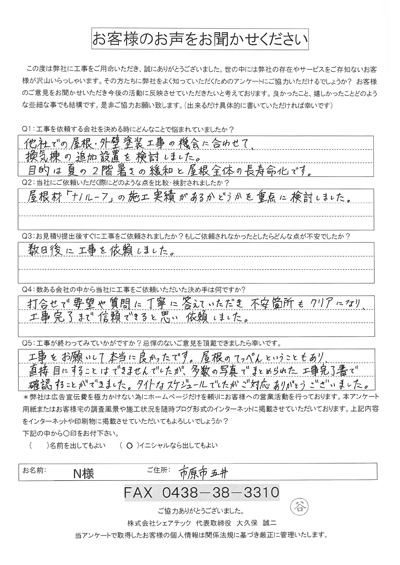 お客様のお声をお聞かせください
この度は弊社に工事をご用命いただき、誠にありがとうございました。世の中には弊社の存在やサービスをご存知ないお客
様が沢山いらっしゃいます。その方たちに弊社をよく知っていただくためのアンケートにご協力いただけるでしょうか? お客様
のご意見をお聞かせいただき今後の活動に反映させていただきたいと考えております。良かったこと、嬉しかったことどのよう
な些細な事でも結構です。是非ご協力お願い致します。(出来るだけ具体的に書いていただければ幸いです)
Q1:工事を依頼する会社を決める時にどんなことで悩まれていましたか?
他社での屋根・外壁塗装工事の機会に合わせて、
換気棟の追加設置を検討しました。
目的は夏の2階暑さの緩和と屋根全体の長寿命化です。
Q2:当社にご依頼いただく際にどのような点を比較・検討されましたか?
屋根材「ナノルーフ」の施工実績があるかどうかを重点に検討しました。
Q3:お見積り提出後すぐに工事をご依頼されましたか?もしご依頼されなかったとしたらどんな点が不安でしたか?
数日後に工事を依頼しました。
Q4:数ある会社の中から当社に工事をご依頼いただいた決め手は何ですか?
打合せで要望や質問に丁寧に答えていただき 不安箇所も クリアになり、
工事完了まで信頼できると思い依頼しました。
Q5:工事が終わってみていかがですか?忌憚のないご意見を頂戴できましたら幸いです。
工事をお願いして本当に良かったです。屋根のてっぺんということもあり、
直接目にすることはできませんでしたが、多数の写真でまとめられた工事完了書で
確認することができました。タイトなスケジュールでしたがご対応ありがとうございました。
*弊社は広告宣伝費を極力かけない為にホームページだけを頼りにお客様への営業活動を行っております。本アンケート
用紙またはお客様宅の調査風景や施工状況を随時ブログ形式のインターネットに掲載させていただいております。上記内容
をインターネットや印刷物に掲載させていただいてもよろしいでしょうか?
下記の中から〇印をお付下さい。
( )名前を出してもよい (〇)イニシャルなら出してもよい
お名前: N様 ご住所: 市原市五井
FAX 0438-38-3310
ご協力ありがとうございました。 谷
株式会社シェアテック 代表取締役 大久保 誠二
当アンケートで取得したお客様の個人情報は関係法規に基づき厳正に管理いたします。